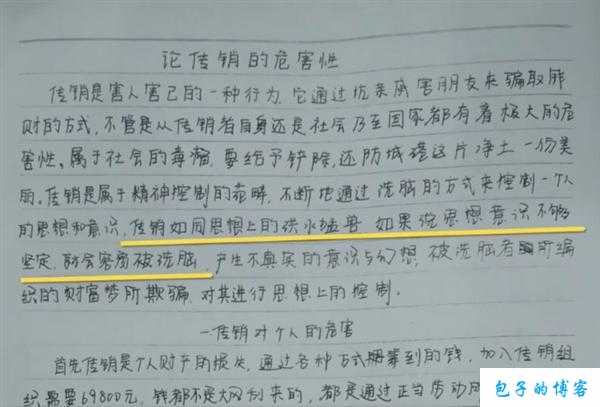 论传销的危害性
传销是害人害己的一种行为,它通过坑亲戚害朋友来骗取钱
财的方式,不管是从传销者自身还是社会乃至国家都有着极大的危
害性、属于社会的毒瘤,要给予铲除,还防城港这片净土一份美
丽。传销是属于精神控制的范畴,不断地通过洗脑的方式来控制一个人
的思想和意识,传销如同思想上的洪水猛兽,如果你思想意识不够
坚定,就会容易被洗脑,产生不真实的意识与幻想,被洗脑者所编
织的财富梦所欺骗,对其进行思想上的控制。
一传销对个人的危害
首先传销是个人财产的损失,通过各种方式筹到的钱,加入传销组
织需要69800元,钱都不是大风刮来的,都是通过正当劳动
包子的博客